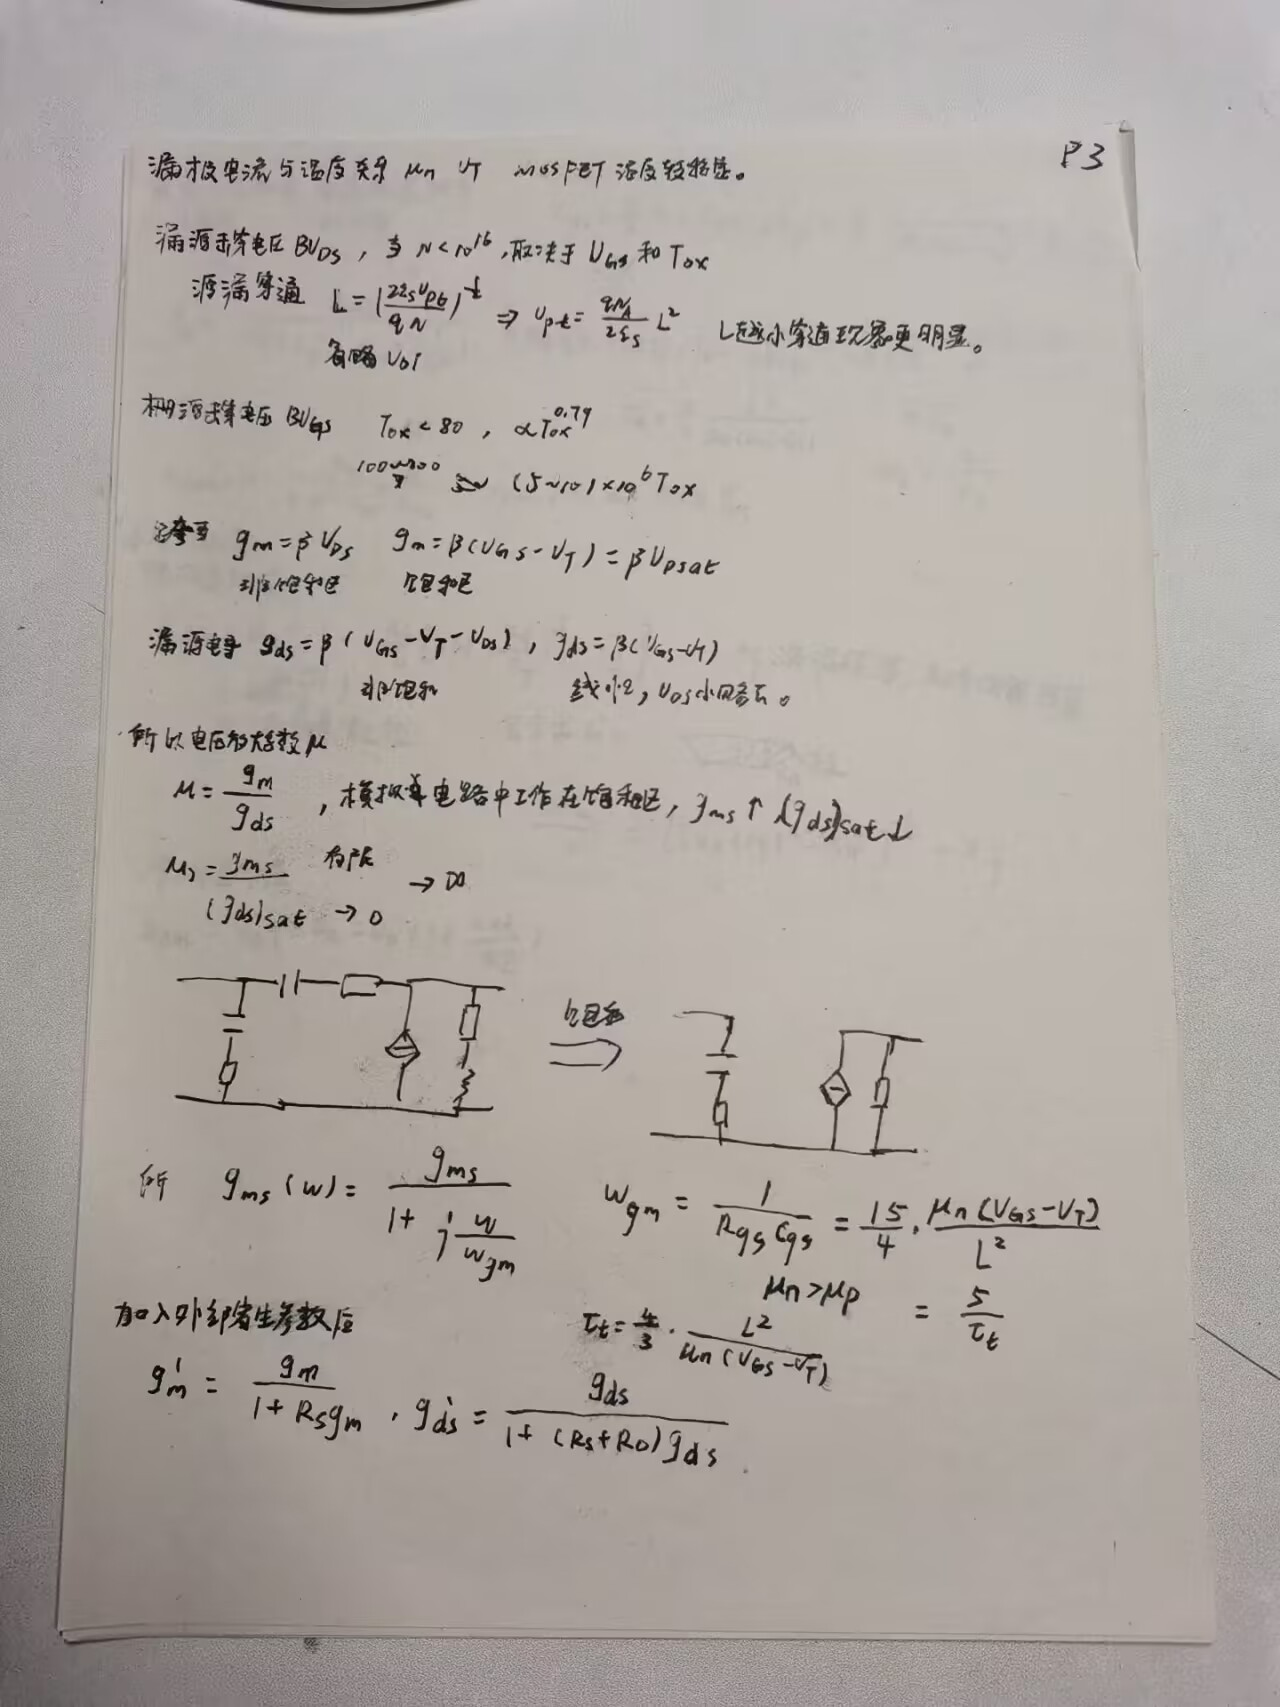 P3
漏极电流与温度关系 μn VT MOSFET 温度较稳定。
漏源击穿电压 BVDS, 当 N<10^16, 取决于 VGS 和 Tox
源漏穿通 L=(2εsVpt/qN)^½ ⇒ Vpt=qNA/2εs L² L越小穿通现象更明显。
省略 Vbi
栅源击穿电压 BVGS Tox<80, ∝Tox^0.79
100~200 (5~10)×10^6 Tox
跨导 gm=βVDS gm=β(VGS-VT)=βVDsat
非饱和区 饱和区
漏源电导 gds=β(VGS-VT-VDS), gds=β(VGS-VT)
非饱和 线性区, VDS小
所以电压放大系数 μ
μ=gm/gds, 模拟 电路中工作在饱和区, gms↑ (gds)sat↓
μs=gms/(gds)sat 有限 →0 →∞
饱和
所 gms(w)=gms/(1+j w/wgm) wgm=1/(Rgs Cgs)=15/4·μn(VGS-VT)/L²
μn>μp =5/τt
加入外部寄生参数后 τt=4/3·L²/(μn(VGS-VT))
gm'=gm/(1+Rsgm), gds'=gds/(1+(Rs+RD)gds)